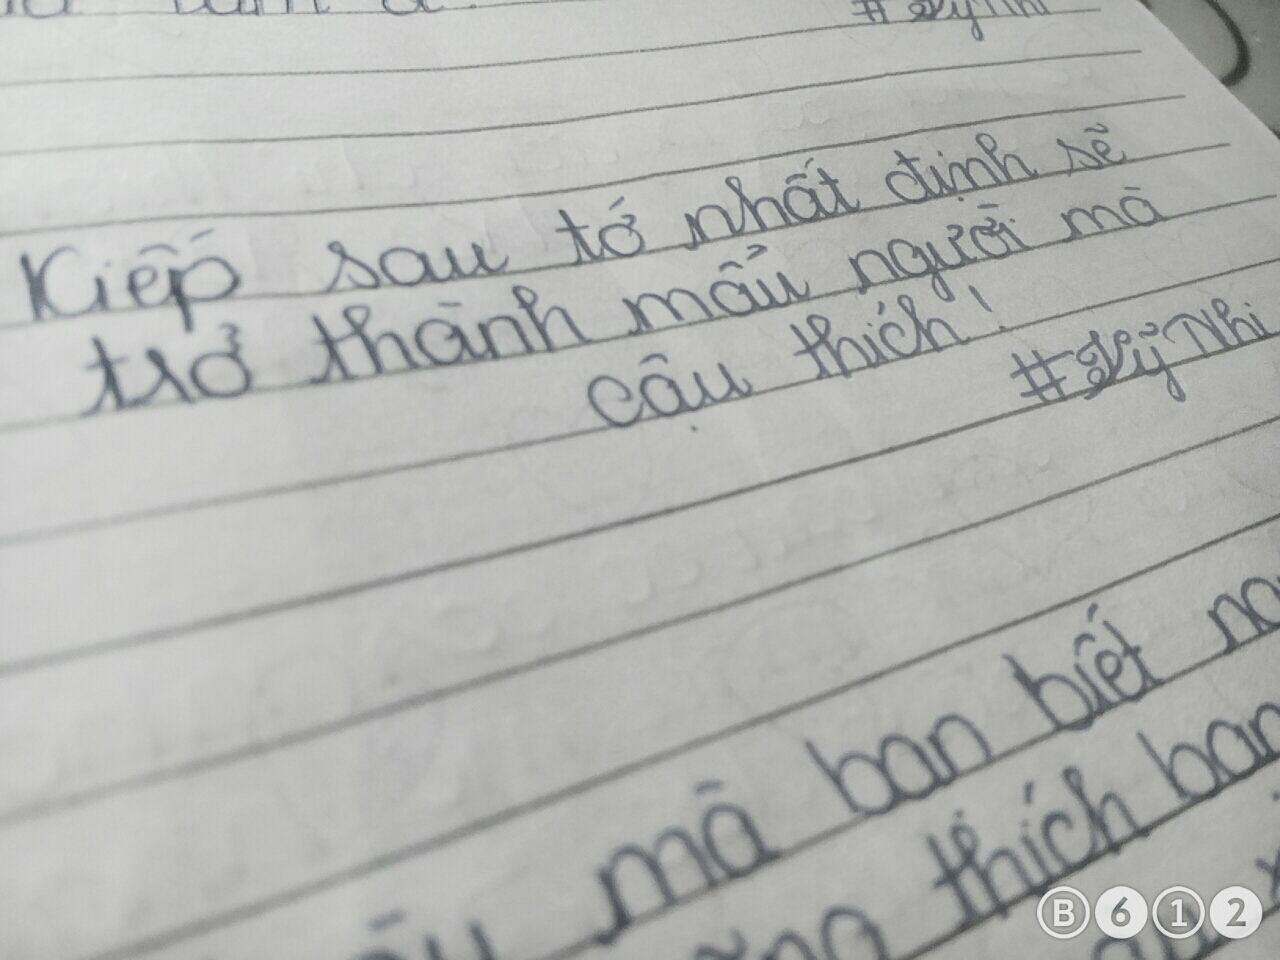 Kiếp sau tớ nhất định sẽ
trở thành mẩu người mà
cậu thích!
#Vỹ Nhi
mà bạn biết
thích
B612